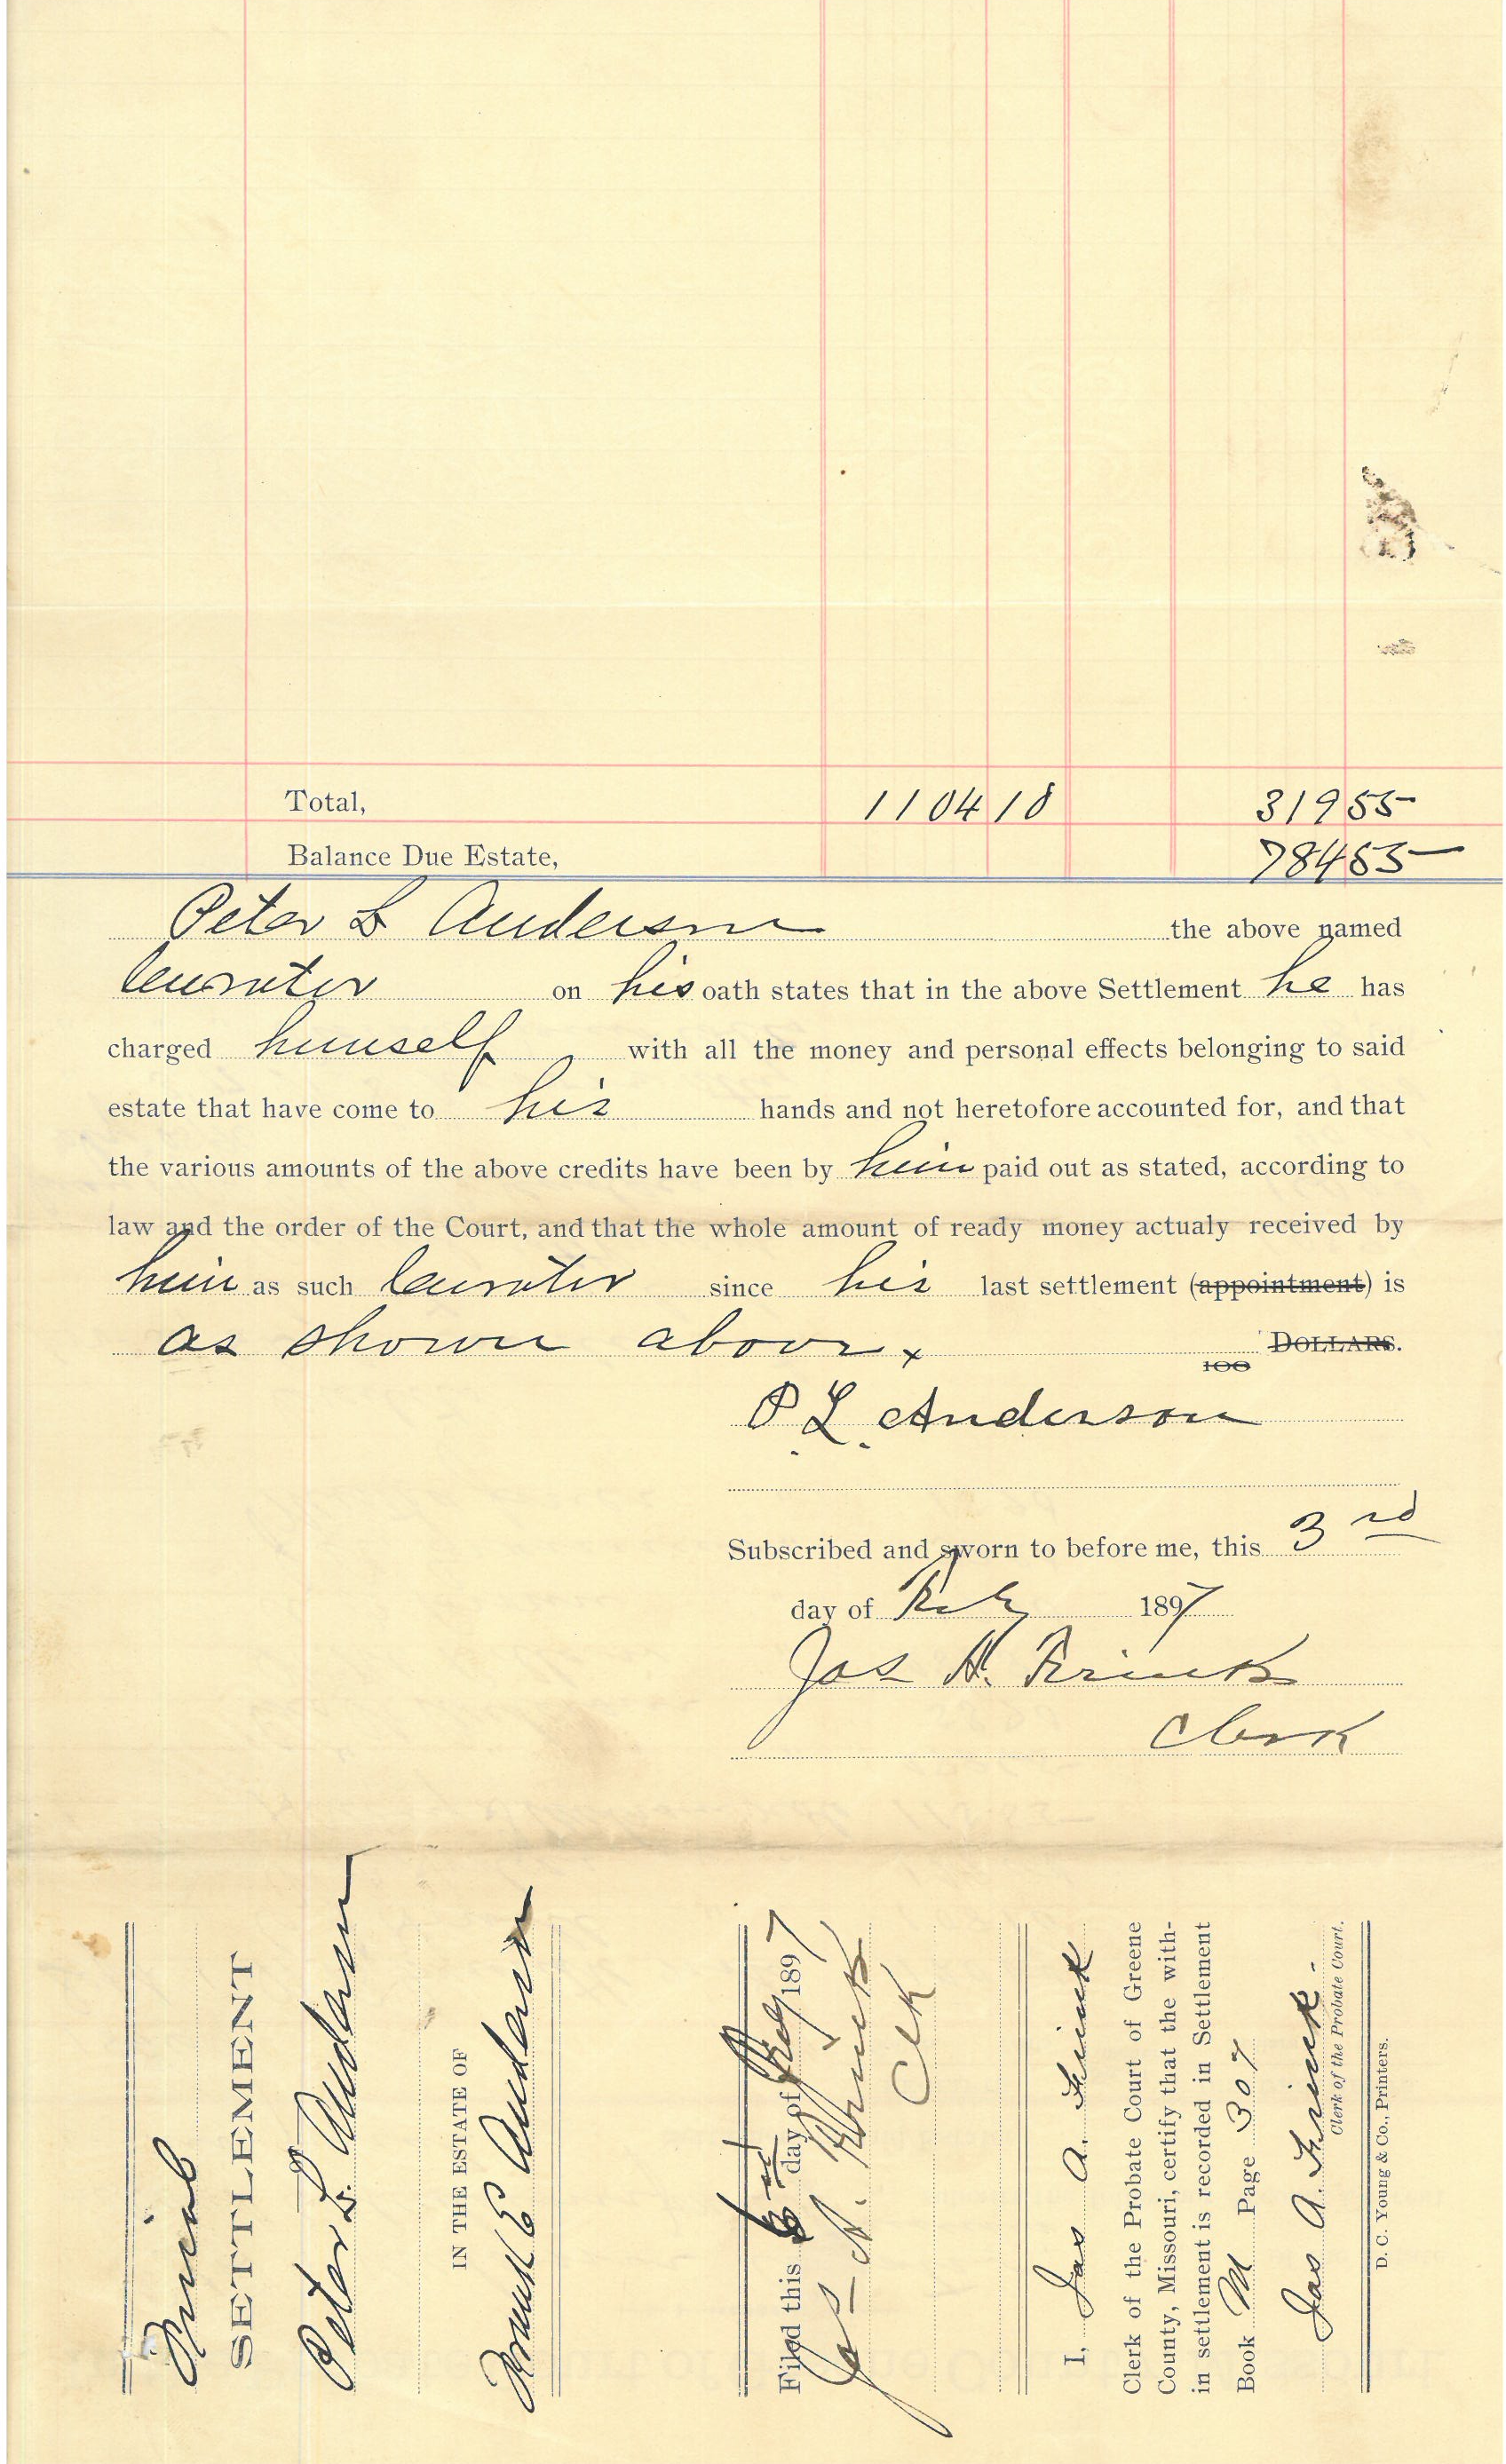 Total, 1104 18 319 55
Balance Due Estate, 784 63
Peter L Anderson the above named
Curator on his oath states that in the above Settlement he has
charged himself with all the money and personal effects belonging to said
estate that have come to his hands and not heretofore accounted for, and that
the various amounts of the above credits have been by him paid out as stated, according to
law and the order of the Court, and that the whole amount of ready money actualy received by
him as such Curator since his last settlement (appointment) is
as shown above. 100 DOLLARS.
P. L. Anderson
Subscribed and sworn to before me, this 3rd
day of Feby 1897
Jas A. Frink
Clerk
Final
SETTLEMENT
Peter L Anderson
IN THE ESTATE OF
Frank E Anderson
Filed this day of Feby 1897
Jas A. Frink
Clk
I, Jas A. Frink
Clerk of the Probate Court of Greene
County, Missouri, certify that the with-
in settlement is recorded in Settlement
Book M Page 307
Jas A. Frink
Clerk of the Probate Court.
D. C. Young & Co., Printers.